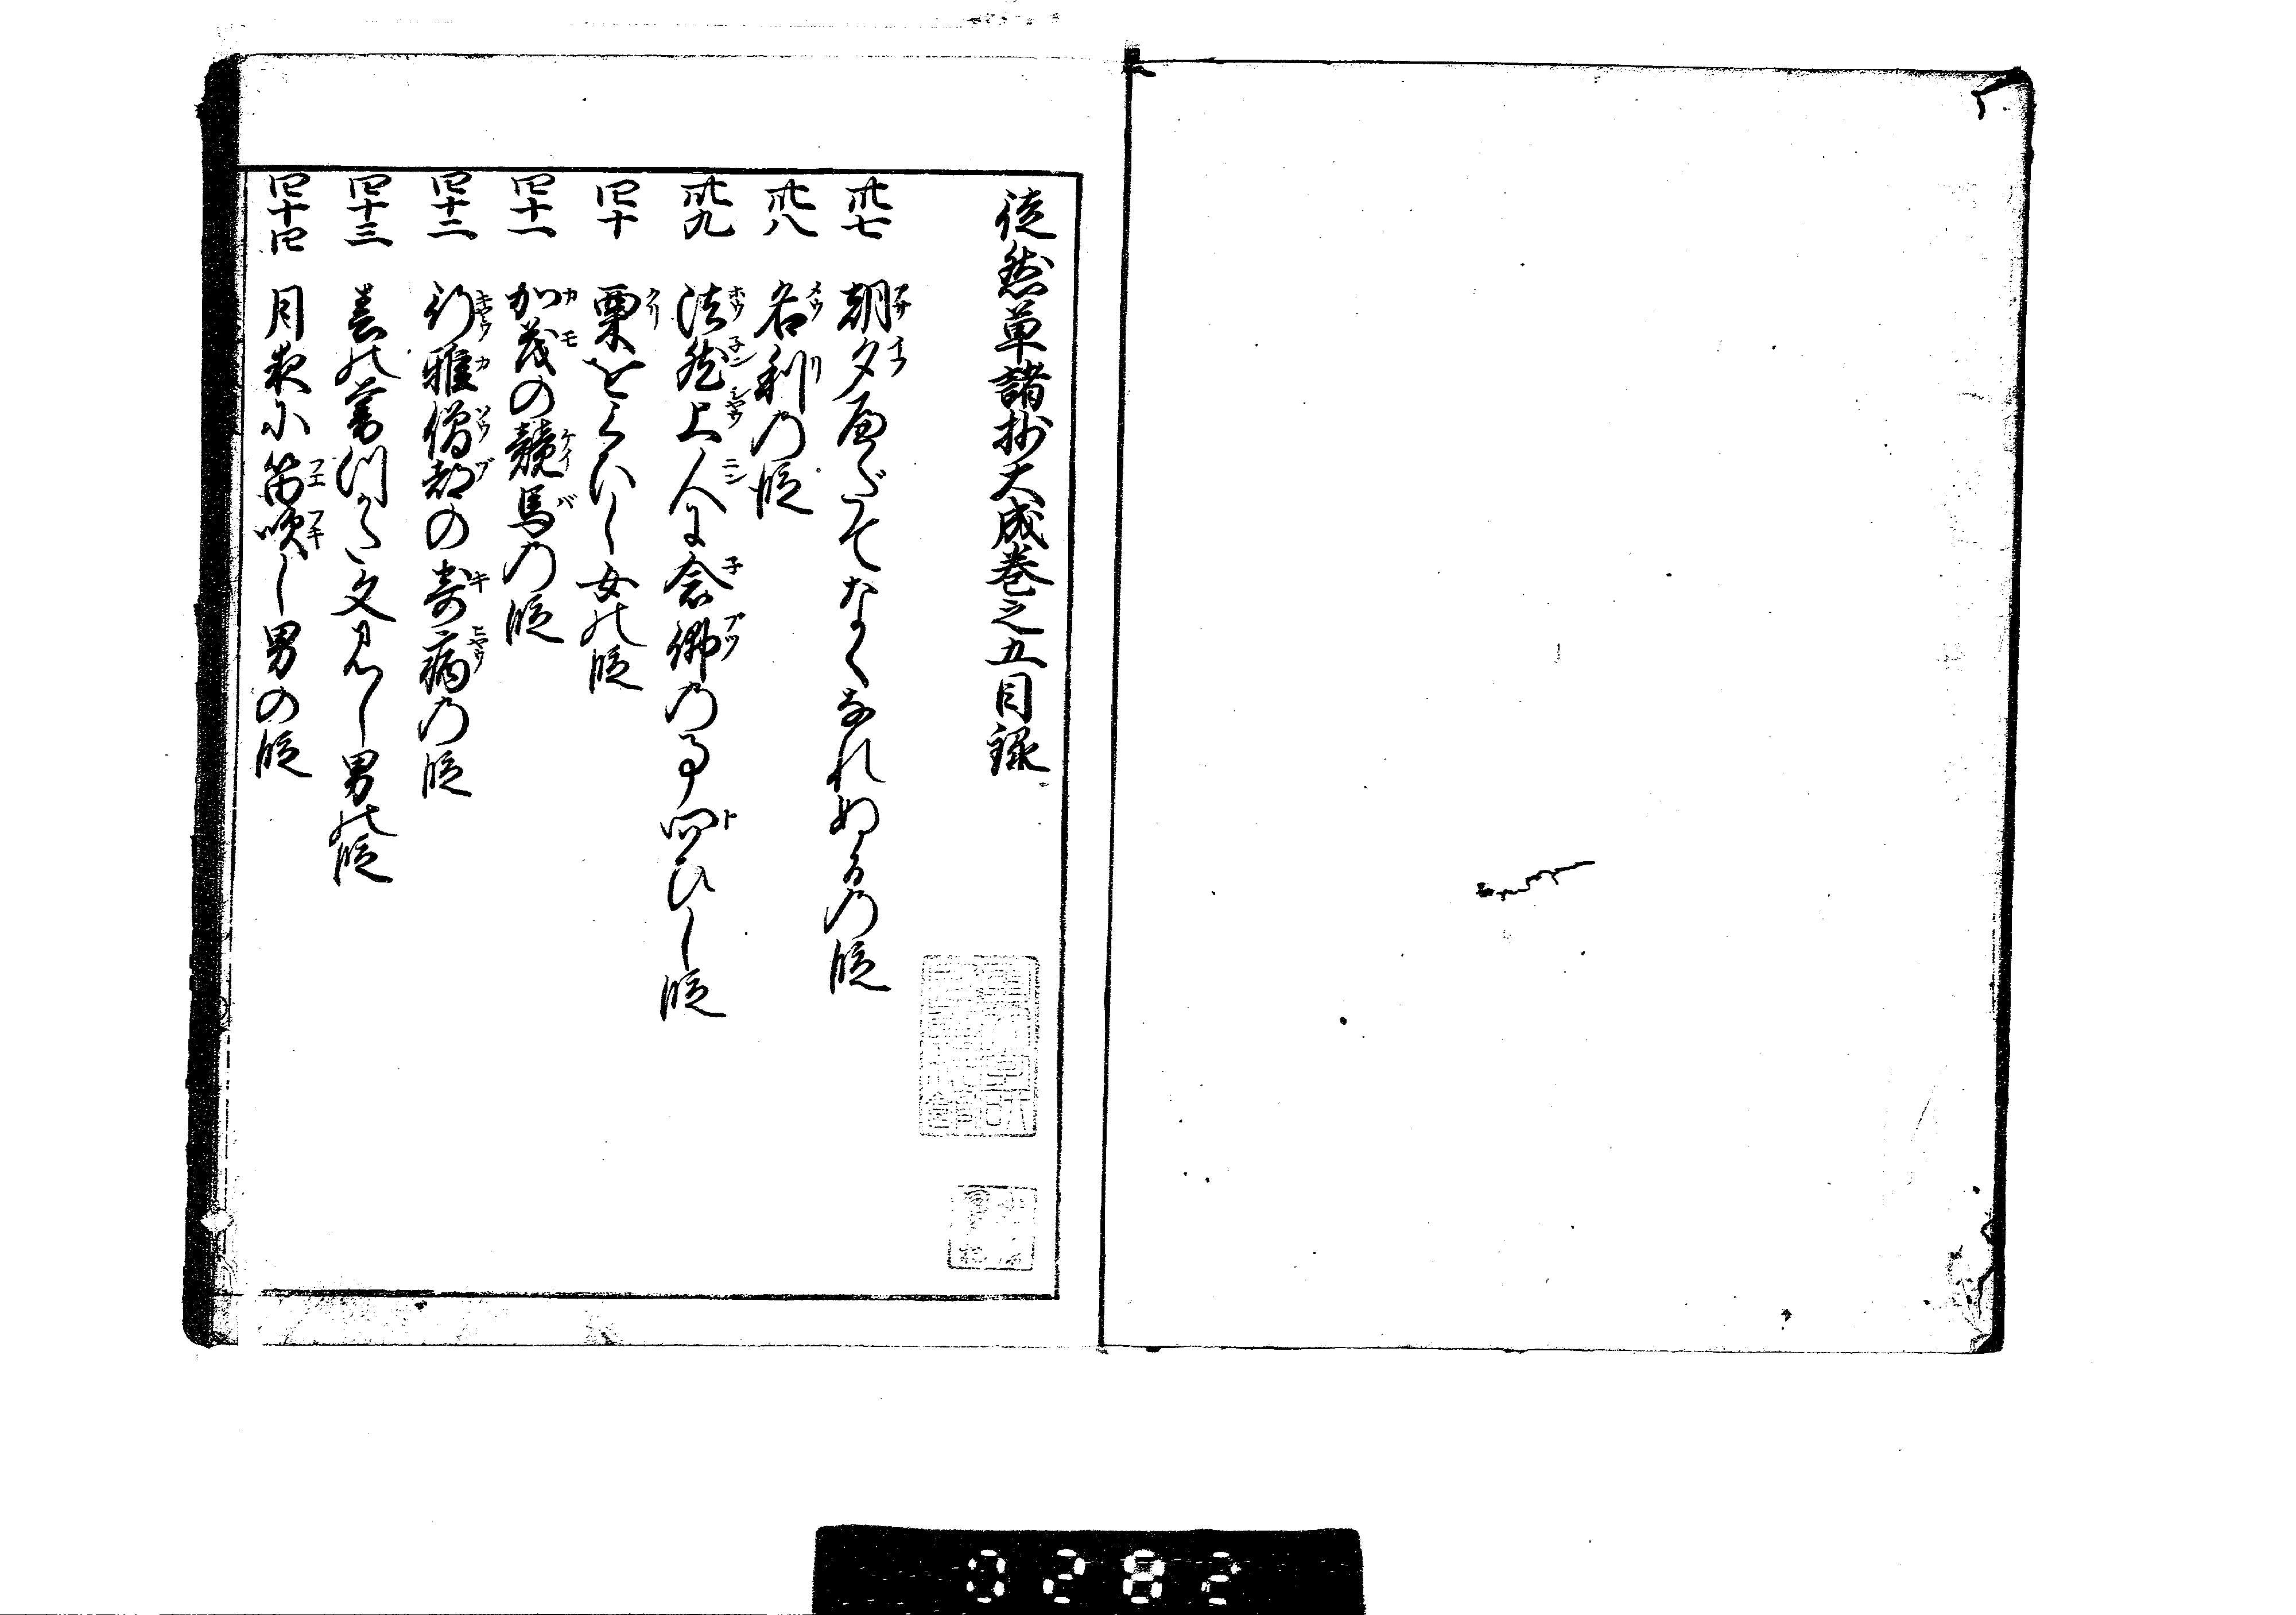 徒然草諸抄大成巻之五目録
卅七 朝夕へだてなくなれぬるの段
卅八 名利の段
卅九 法然上人に念仏の事問ひし段
四十 栗をくひし女の段
四十一 加茂の競馬の段
四十二 行雅僧都の奇病の段
四十三 春の暮つかた文見し男の段
四十四 月夜に笛吹し男の段
0282